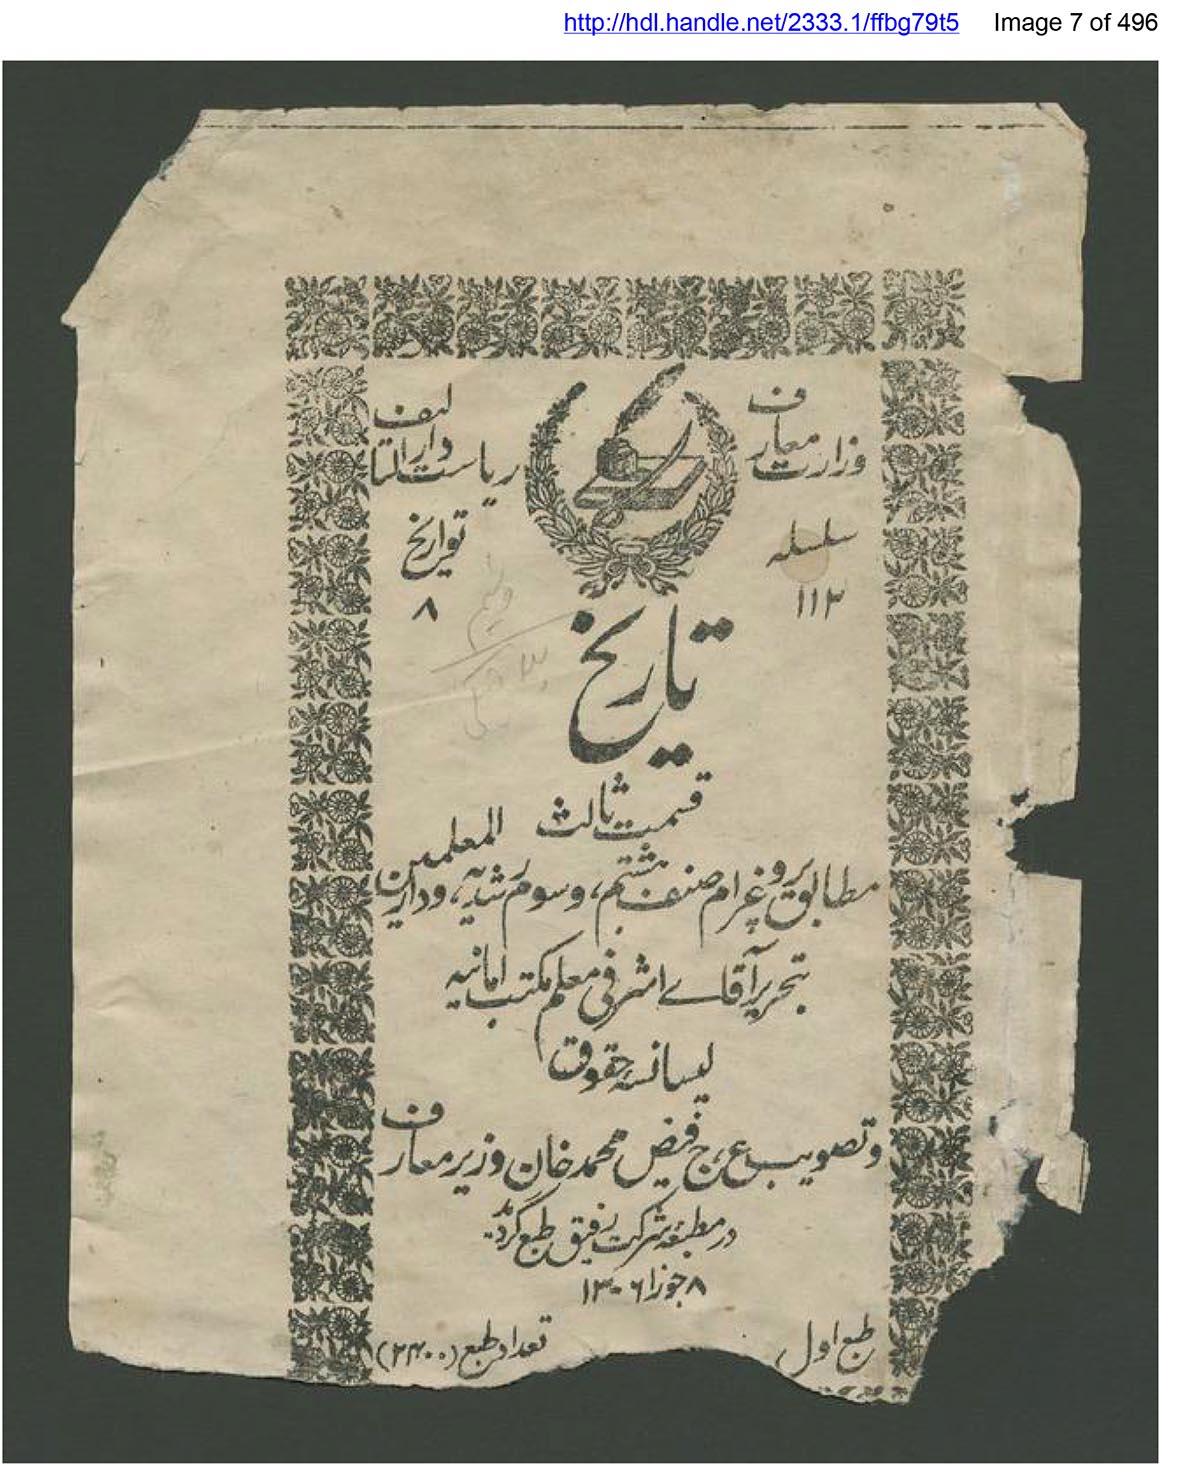 http://hdl.handle.net/2333.1/ffbg79t5 Image 7 of 496
وزارت معارف
ریاست دارالتالیف
سلسله
۱۱۳
تواریخ
۸
تاریخ
قسمت ثالث
مطابق پروغرام صنف هشتم، و سوم رشدیه، و دارالمعلمین
بتحریر آقاے اشرفی معلم مکتب امانیه
لیسانسهٔ حقوق
و تصویب ع، ج فیض محمد خان وزیر معارف
در مطبعهٔ شرکت رفیق طبع گردید
۸ جوزا ۱۳۰۶
طبع اول
تعداد طبع (۲۴۰۰)